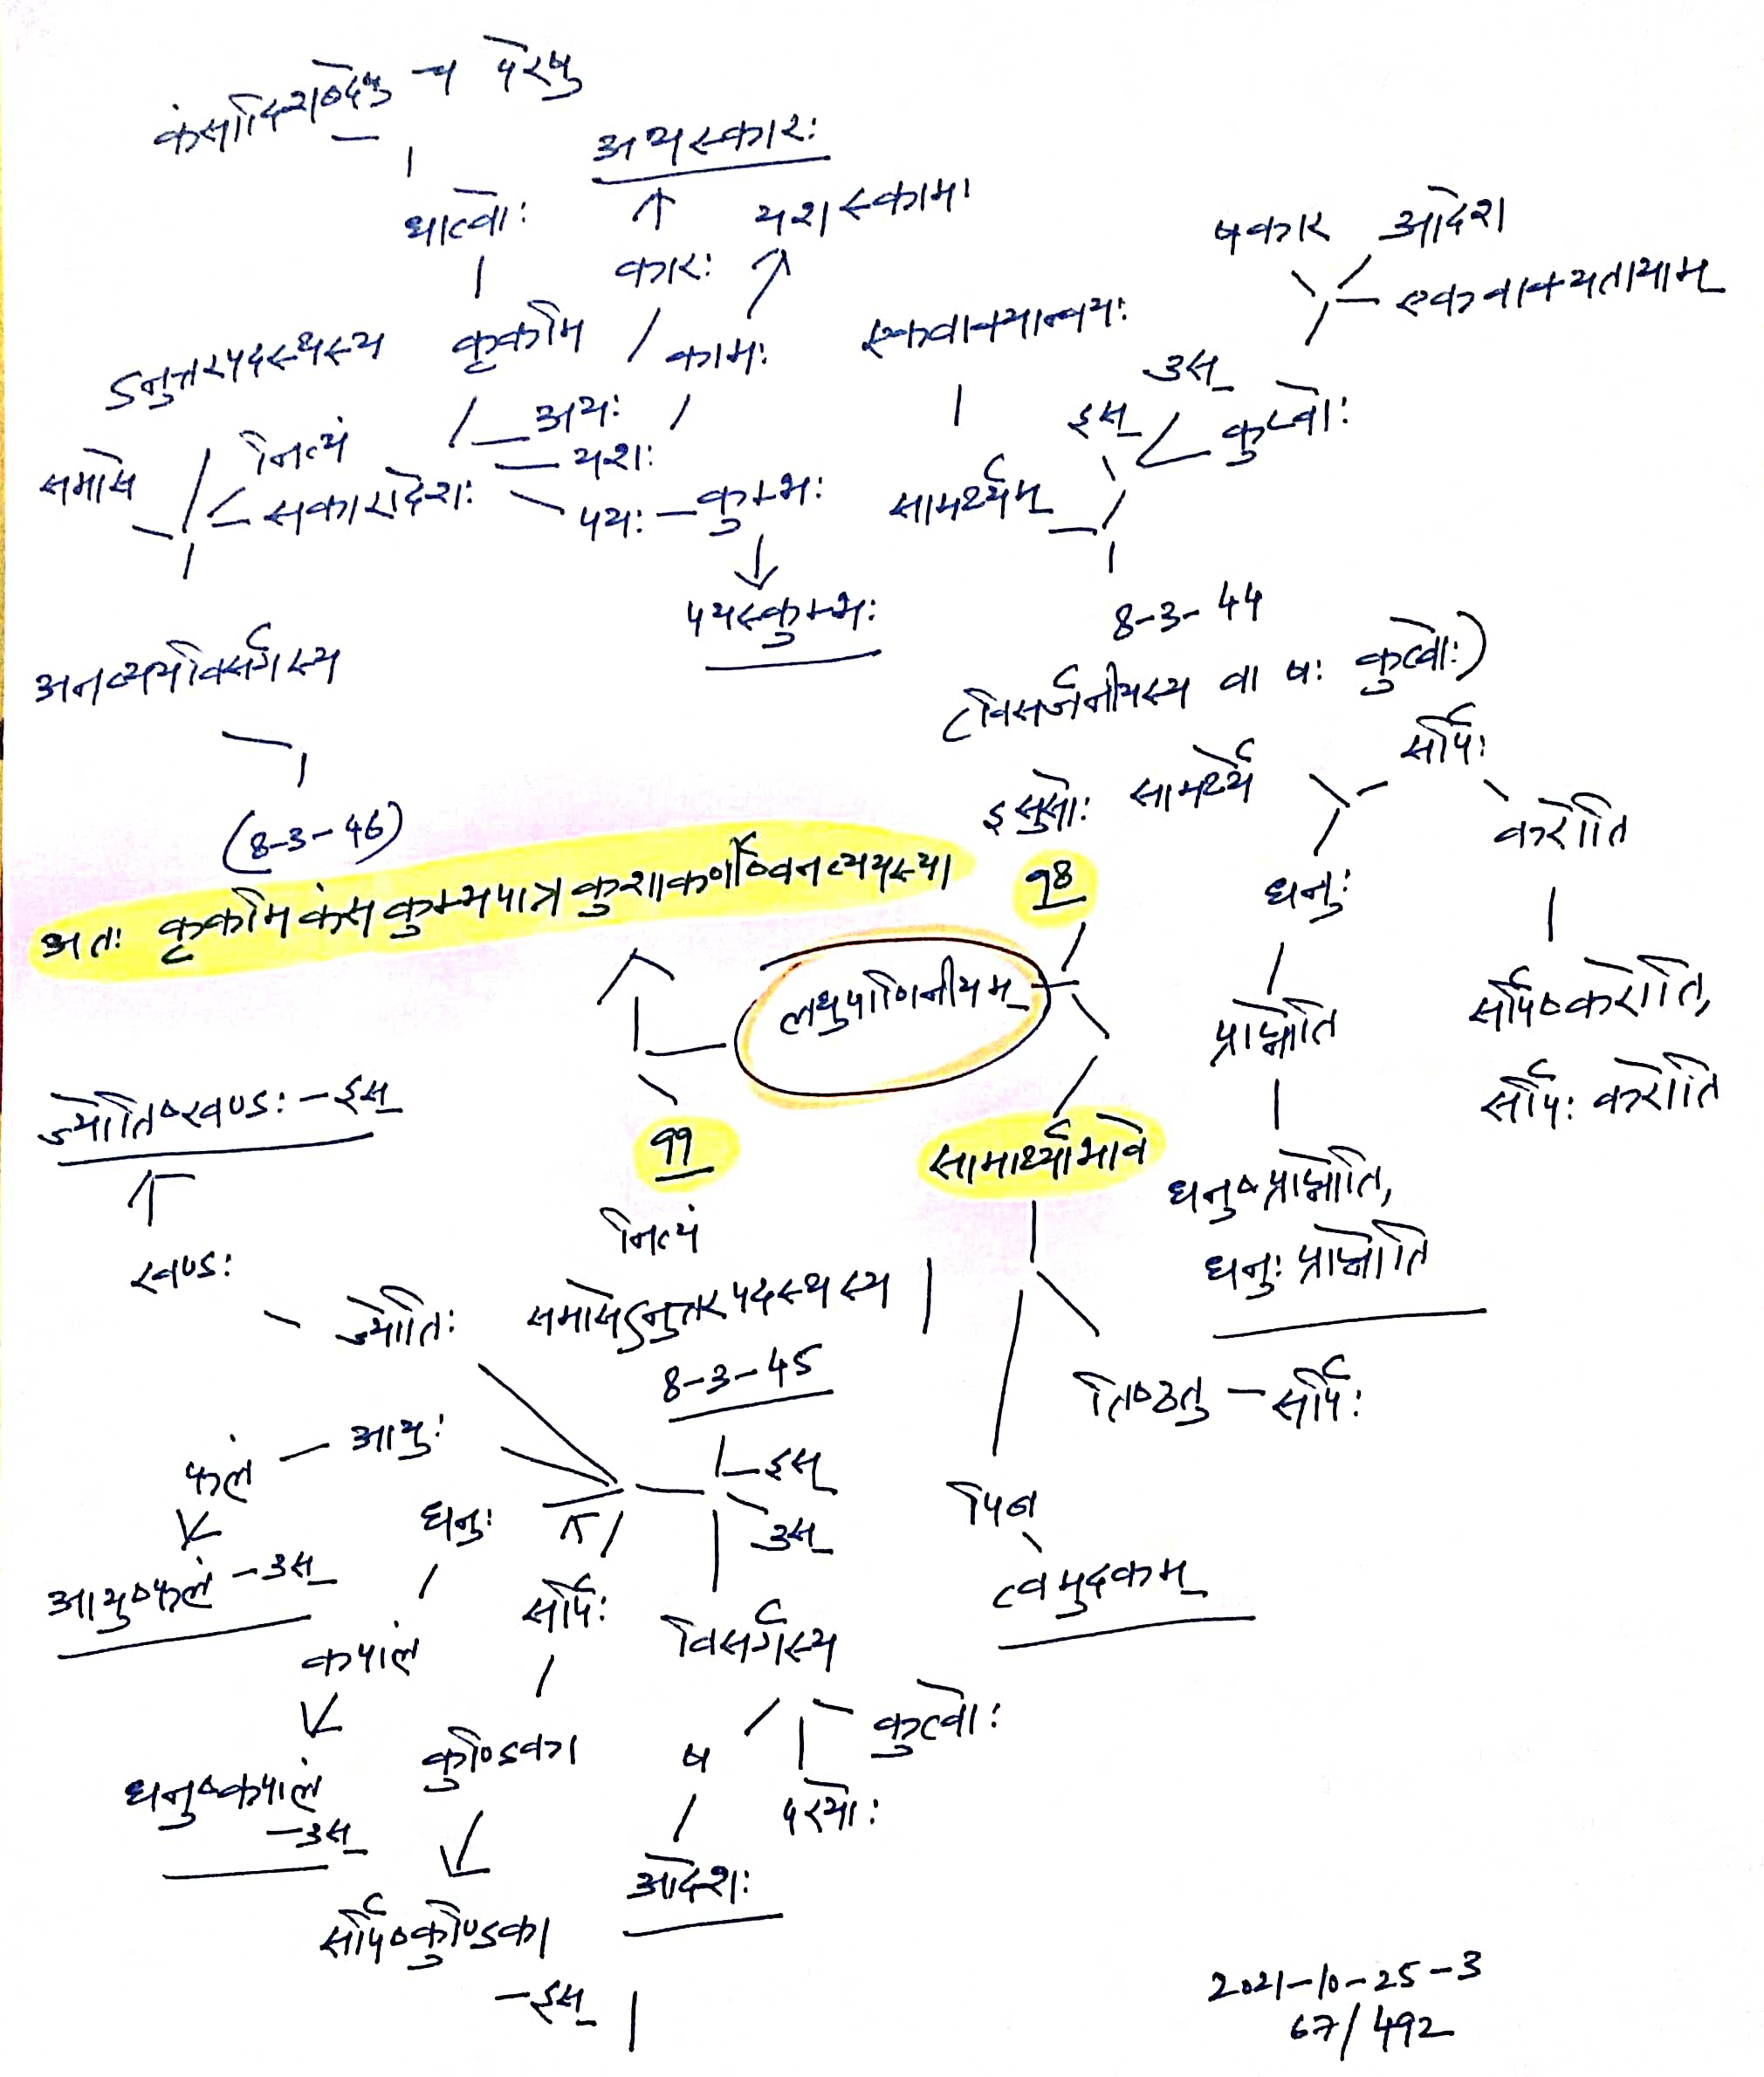 कंसादिशब्देषु च परेषु
धात्वोः
अयस्कारः
यशस्कामः
कारः
कृकमि
कामः
ऽनुत्तरपदस्थस्य
समासे
नित्यं
सकारादेशः
अयः
यशः
पयः – कुम्भः
पयस्कुम्भः
अनव्ययविसर्गस्य
(8-3-46)
अतः कृकमिकंसकुम्भपात्रकुशाकर्णीष्वनव्ययस्य।
षकार आदेश
एकवाक्यतायाम्
एकवाक्यान्वयः
इस् उस् कुप्वोः
सामर्थ्यम्
8-3-44
(विसर्जनीयस्य वा षः कुप्वोः)
इसुसोः सामर्थ्ये
98
सर्पिः
करोति
धनुः
प्राप्नोति
सर्पिष्करोति,
सर्पिः करोति
धनुष्प्राप्नोति,
धनुः प्राप्नोति
लघुपाणिनीयम्
सामार्थ्याभावे
तिष्ठतु – सर्पिः
पिब
त्वमुदकम्
99
नित्यं
समासेऽनुत्तरपदस्थस्य।
8-3-45
इस्
उस्
विसर्गस्य
कुप्वोः
परयोः
ष
आदेशः
ज्योतिष्खण्डः – इस्
खण्डः
ज्योतिः
फलं – आयुः
आयुष्फलं – उस्
धनुः
कपालं
धनुष्कपालं
– उस्
सर्पिः
कुण्डिका
सर्पिष्कुण्डिका
– इस् |
2021-10-25-3
67/492